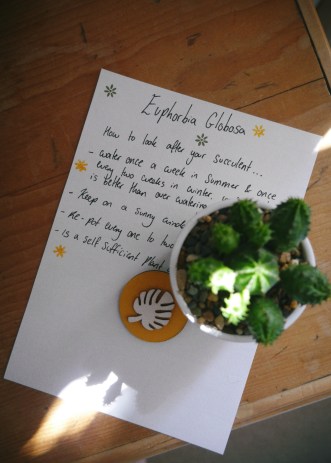 Euphorbia Globosa
How to look after your succulent...
- water once a week in Summer & once
every two weeks in winter.
is better than over watering
- Keep on a sunny
- Re-pot every one to two
- is a self sufficient plant